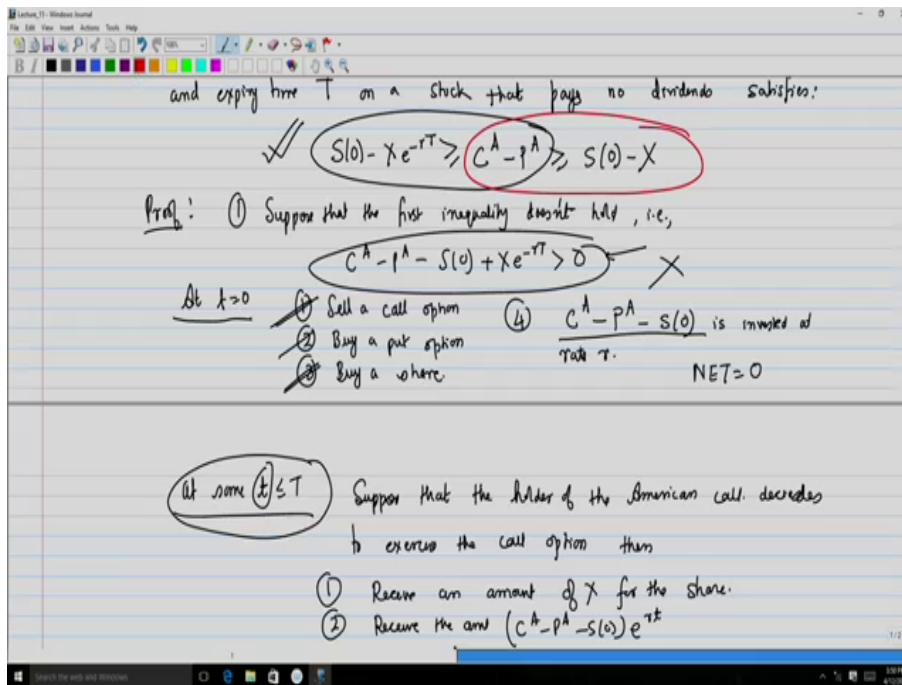 Lecture_11 - Windows Journal
File Edit View Insert Actions Tools Help
B I
and expiry time T on a stock that pays no dividends satisfies:
S(0) - Xe^{-rT} ≥ C^A - P^A ≥ S(0) - X
Proof: ① Suppose that the first inequality doesn't hold, i.e.,
C^A - P^A - S(0) + Xe^{-rT} > 0 ← X
At t=0 ① Sell a call option ④ C^A - P^A - S(0) is invested at
② Buy a put option rate r.
③ Buy a share. NET = 0
At some t ≤ T Suppose that the holder of the American call decides
to exercise the call option then
① Receive an amount of X for the share.
② Receive the amt (C^A - P^A - S(0)) e^{rt}
1/2
1
Search the web and Windows